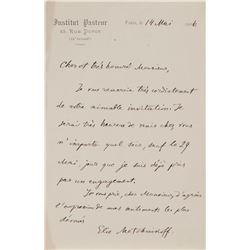 Institut Pasteur
25, Rue Dutot
Paris, le 14 Mai 1906
Cher et très honoré Monsieur,
Je vous remercie très cordialement
de votre aimable invitation. Je
serais très heureux de venir chez vous
n'importe quel soir, sauf le 29
Mai, jour que je suis déjà pris
par un engagement.
Je vous prie, cher Monsieur, d'agréer
l'expression de mes sentiments les plus
dévoués
Elie Metchnikoff